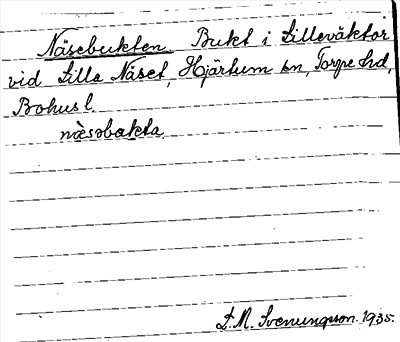 Näsebukten. Bukt i Lilleväktor
vid Lilla Näset, Hjärtum sn, Torpe hd,
Bohusl.
næsəbakta
L.M. Svenungsson. 1935.